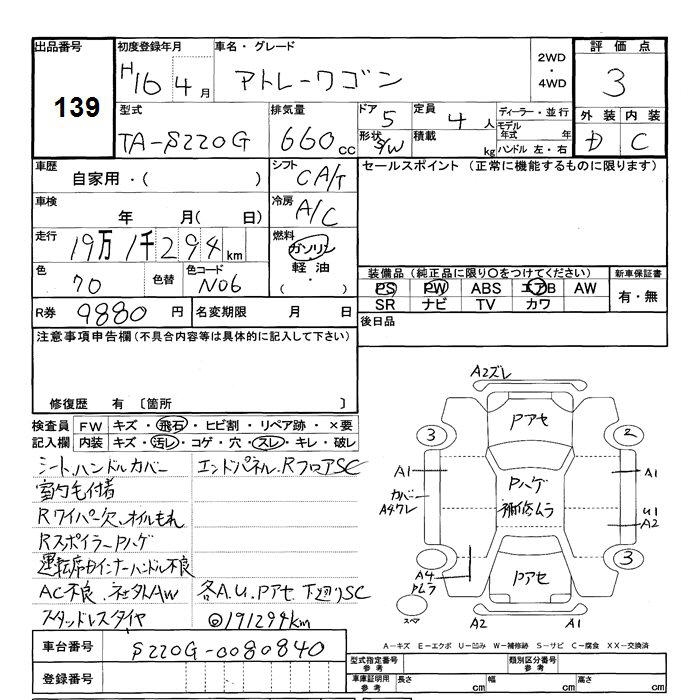 出品番号
139
初度登録年月
H16 4月
車名・グレード
アトレーワゴン
2WD
・
4WD
評価点
3
外装 内装
D C
型式
TA-S220G
排気量
660cc
ドア 5
形状 S/W
定員 4人
積載 kg
ディーラー・並行
モデル年式 年
ハンドル 左・右
車歴
自家用・( )
シフト
CA/T
セールスポイント (正常に機能するものに限ります)
車検
年 月( 日)
冷房
A/C
走行
19万1千294km
燃料
ガソリン
・
軽油
・
( )
色
70
色替
色コード
N06
装備品(純正品に限り〇をつけてください)
PS PW ABS エアB AW
SR ナビ TV カワ
新車保証書
有・無
R券
9880円
名変期限 月 日
後日品
注意事項申告欄(不具合内容等は具体的に記入して下さい)
修復歴 有〔箇所 〕
検査員 FW キズ・飛石・ヒビ割・リペア跡・×要
記入欄 内装 キズ・汚レ・コゲ・穴・スレ・キレ・破レ
シート、ハンドルカバー
エンドパネル、RフロアSC
室内毛付着
Rワイパー欠、オイルもれ
RスポイラーPハゲ
運転席インナーハンドル不良
AC不良、社外AW
各A.U.Pアセ 下廻りSC
スタッドレスタイヤ
◎191294km
A2ズレ
Pアセ
3
2
A1
A1
カバー
A4ワレ
Pハゲ
補修ムラ
U1
A2
3
A4
Pムラ
Pアセ
スペア
A2
A1
A－キズ E－エクボ U－凹み W－補修跡 S－サビ C－腐食 XX－交換済
車台番号
S220G-0080840
登録番号
型式指定番号
参考
類別区分番号
参考
車庫証明用
参考
長さ cm
幅 cm
高さ cm